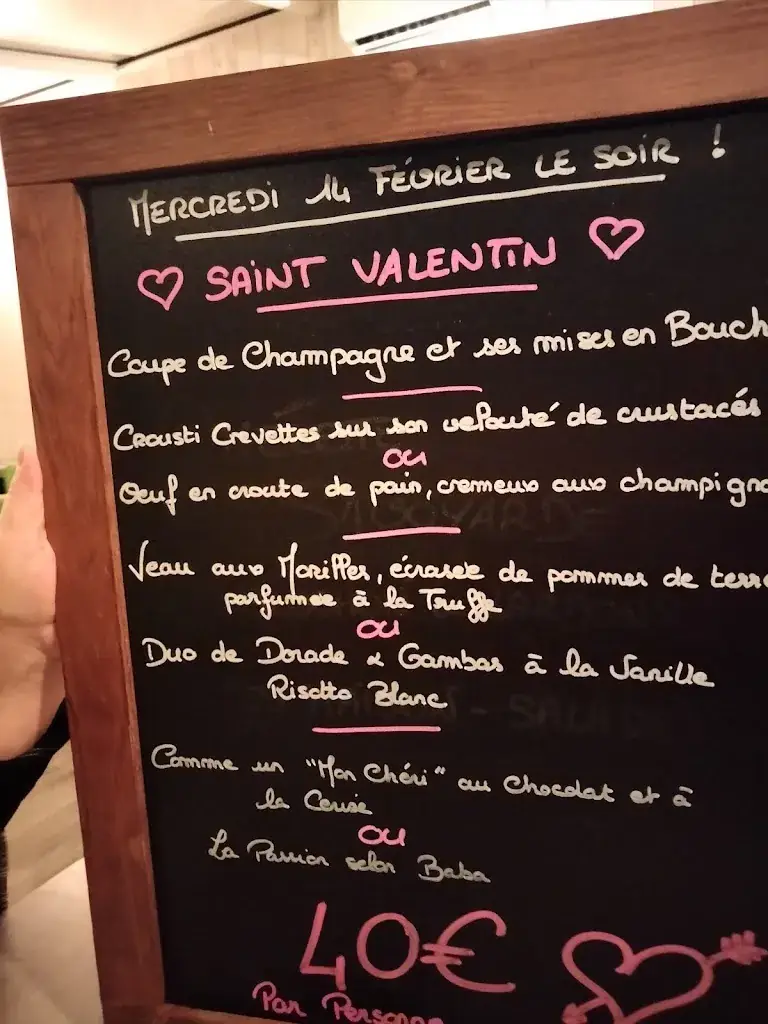 MERCREDI 14 FÉVRIER LE SOIR !
SAINT VALENTIN
Coupe de Champagne et ses mises en Bouch
Crousti Crevettes sur son velouté de crustacés
ou
Oeuf en croute de pain, cremeux aux champigno
Veau aux Morilles, écrasée de pommes de terre
parfumée à la Truffe
ou
Duo de Dorade & Gambas à la Vanille
Risotto Blanc
Comme un "Mon Chéri" au Chocolat et à
la Cerise
ou
La Passion selon Baba
40€
Par Personne